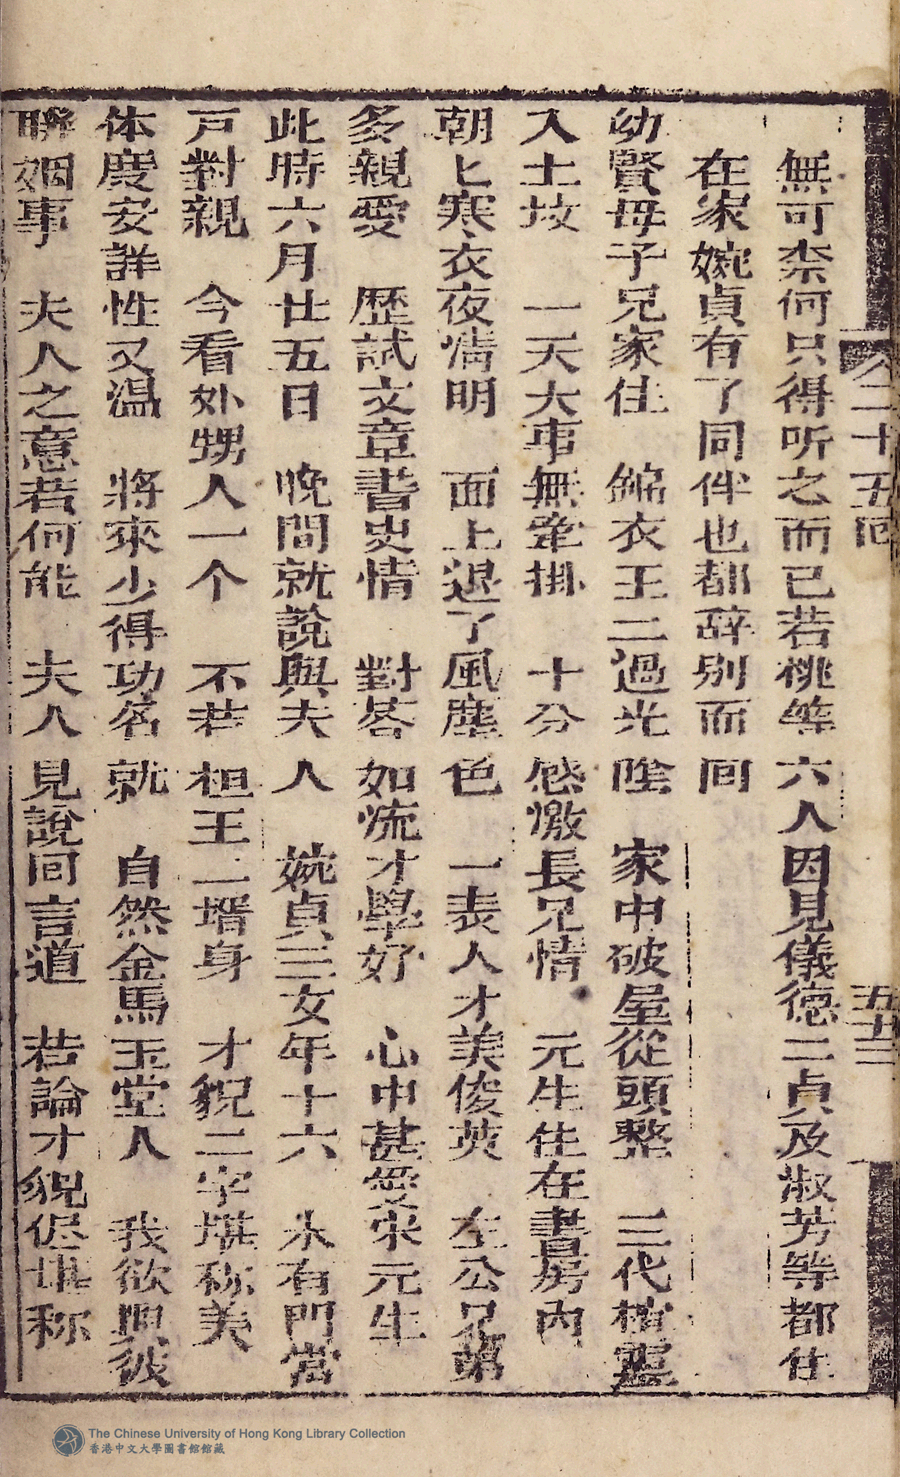 無可柰何只得听之而已若桃等六人因見儀德二貞及淑芳等都住
在家婉貞有了同伴也都辞别而回
幼賢母子兄家住　錦衣王二過光陰　家中破屋從頭整　三代棺靈
入土坟　一天大事無牽掛　十分感激長兄情　元生住在書房内
朝上寒衣夜清明　面上退了風塵色　一表人才美俊英　左公兄弟
多親愛　歷試文章書史情　對答如流才學好　心中甚愛宋元生
此時六月廿五日　晚間就說與夫人　婉貞三女年十六　未有門當
戸對親　今看外甥人一个　不若担王二壻身　才貌二字堪称美
体度安詳性又温　將來少得功名就　自然金馬玉堂人　我欲與彼
聯姻事　夫人之意若何能　夫人見說回言道　若論才貌侭堪称
八二十五回
五廿三
The Chinese University of Hong Kong Library Collection
香港中文大學圖書館館藏